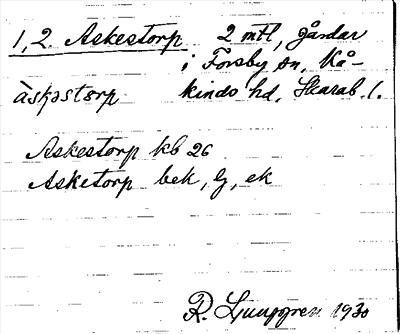 1, 2. Askestorp 2 mtl, gårdar
i Forsby sn, Kå-
àskəstɵrp kinds hd, Skarab. l.
Askestorp kb 26
Asketorp bek, lg, ek
R. Ljunggren 1930